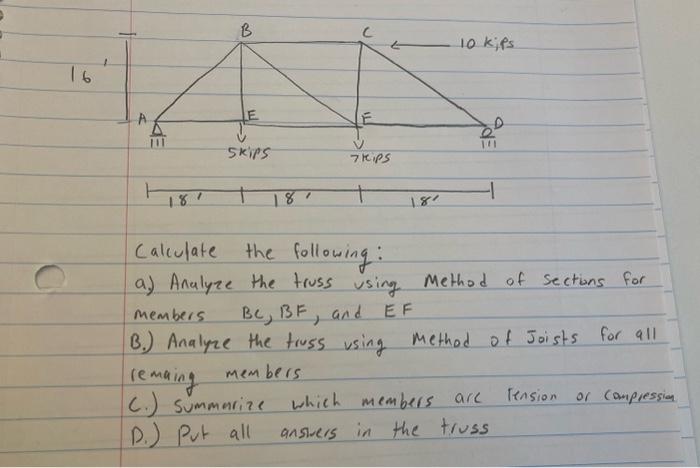 B C
10 kips
16'
A E F D
5kips 7kips
18' 18' 18'
Calculate the following:
a) Analyze the truss using Method of Sections for
members BC, BF, and EF
B.) Analyze the truss using Method of Joists for all
remaing members
C.) Summarize which members are Tension or Compression
D.) Put all answers in the truss